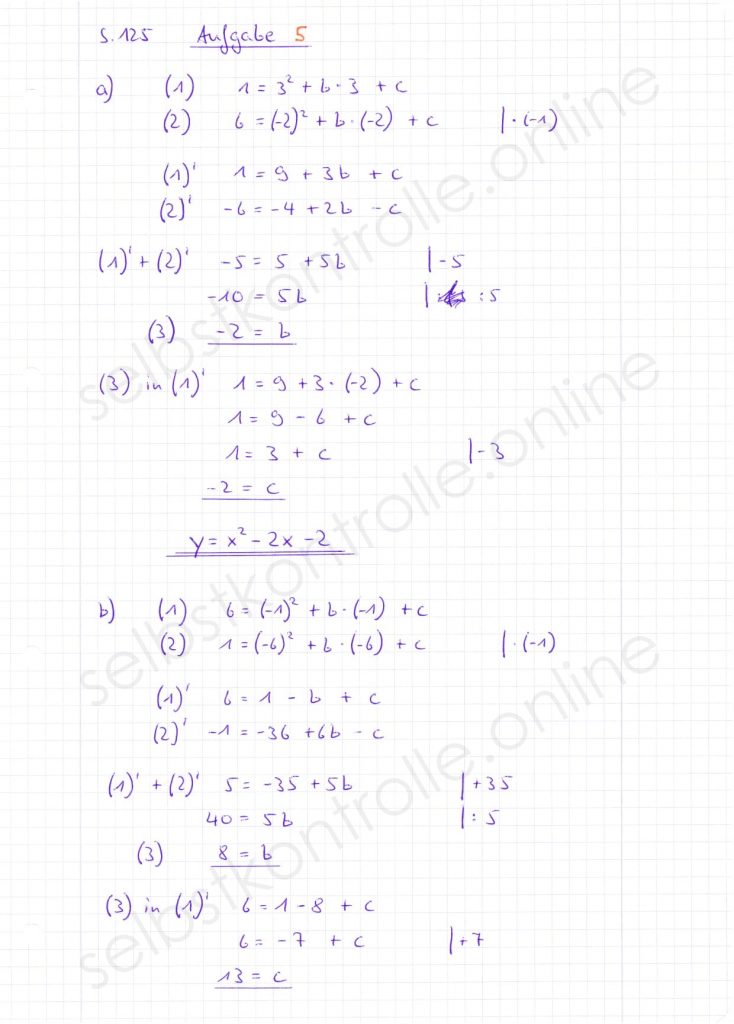 S. 125 Aufgabe 5
a) (1) 1 = 3² + b · 3 + c
(2) 6 = (-2)² + b · (-2) + c | · (-1)
(1)' 1 = 9 + 3b + c
(2)' -6 = -4 + 2b - c
(1)' + (2)' -5 = 5 + 5b | -5
-10 = 5b | : 5
(3) -2 = b
(3) in (1)' 1 = 9 + 3 · (-2) + c
1 = 9 - 6 + c
1 = 3 + c | -3
-2 = c
y = x² - 2x - 2
b) (1) 6 = (-1)² + b · (-1) + c
(2) 1 = (-6)² + b · (-6) + c | · (-1)
(1)' 6 = 1 - b + c
(2)' -1 = -36 + 6b - c
(1)' + (2)' 5 = -35 + 5b | +35
40 = 5b | : 5
(3) 8 = b
(3) in (1)' 6 = 1 - 8 + c
6 = -7 + c | +7
13 = c
selbstkontrolle.online
selbstkontrolle.online
selbstkontrolle.online